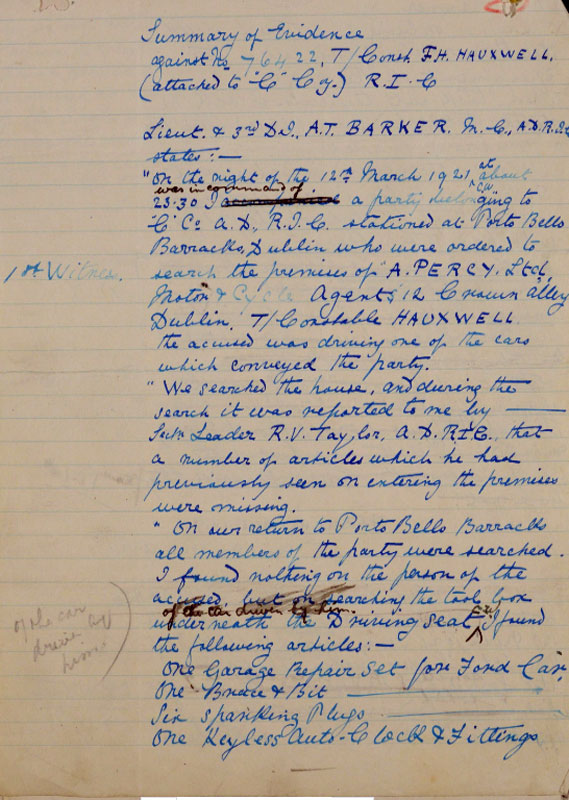 Summary of Evidence
against No 76422, T/Const. F.H. HAUXWELL.
(attached to "C" Coy.) R.I.C
Lieut. & 3rd D.I., A.T. BARKER. M.C., A.D.R.I.C
states:—
"On the night of the 12th March 1921 at about
was in command of
23.30 I a party belonging to
"C" Co A.D., R.I.C. stationed at Porto Bello
Barracks, Dublin who were ordered to
1st Witness.
search the premises of A. PERCY. Ltd,
Motor & Cycle Agents 12 Crown Alley
Dublin. T/Constable HAUXWELL
the accused was driving one of the cars
which conveyed the party.
"We searched the house, and during the
search it was reported to me by
Sectn Leader R.V. Taylor, A.D.R.I.C., that
a number of articles which he had
previously seen on entering the premises
were missing.
"On our return to Porto Bello Barracks
all members of the party were searched.
I found nothing on the person of the
accused, but on searching the tool box
of the car driven by him.
underneath the Driving Seat I found
of the car
driven by
him
the following articles:—
One Garage Repair Set for Ford Car,
One Brace & Bit
Six Sparking Plugs
One Keyless Auto-Clock & Fittings